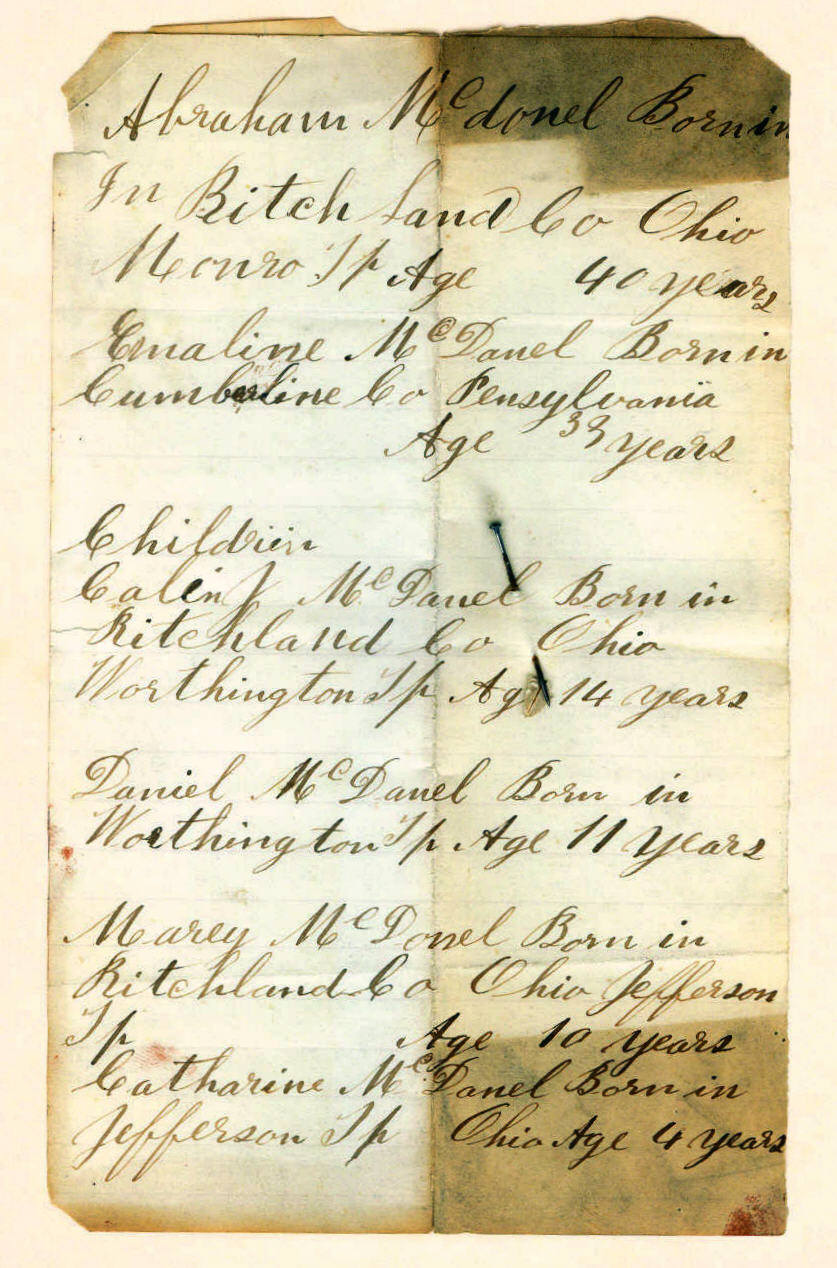 Abraham McdoneL Born in
In Ritch Land Co Ohio
Monro Tp Age 40 years
Emaline McDanel Born in
Cumberline Co Pensylvania
Age 33 years
Childrin
Calin J McDanel Born in
Ritchland Co Ohio
Worthington Tp Age 14 years
Daniel McDanel Born in
Worthington Tp Age 11 years
Marey McDonel Born in
Ritchland Co Ohio Jefferson
Tp Age 10 years
Catharine McDanel Born in
Jefferson Tp Ohio Age 4 years